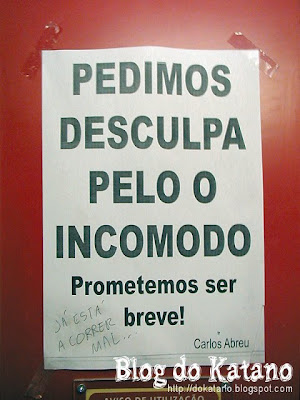 PEDIMOS
DESCULPA
PELO O
INCOMODO
Prometemos ser
breve!
JÁ ESTÁ
A CORRER
MAL...
Carlos Abreu
Blog do Katano
http://dokatano.blogspot.com
AVISO DE UTILIZAÇÃO